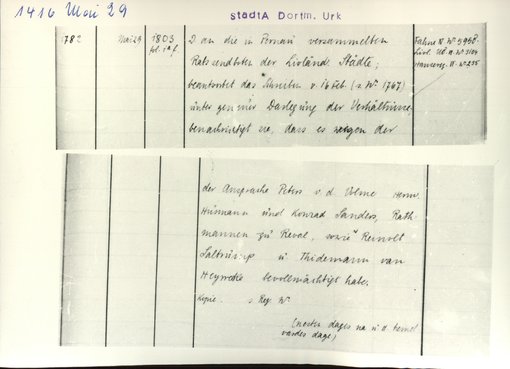 1416 Mai 29
StadtA Dortm. Urk
1782 Mai 29 1803
D an die in Pernau versammelten
Ratssendboten der Livländ. Städte;
beantwortet das Schreiben v. 16 Feb. (s. Nº 1767)
unter genauer Darlegung der Verhältnisse,
benachrichtigt sie, dass es wegen der
Fahne II Nº
Livl. UB. Nº
Hanserez. Nº
der Ansprache Peters v. d. Volme Herm.
Husmann und Konrad Sanders, Rath
mannen zu Reval, sowie Reinolt
Saltrump u Thidemann van
Heyweke bevollmächtigt habe.
Kopie. s. Reg. Nº
(nesten dages na u d hemel
vardes dage)